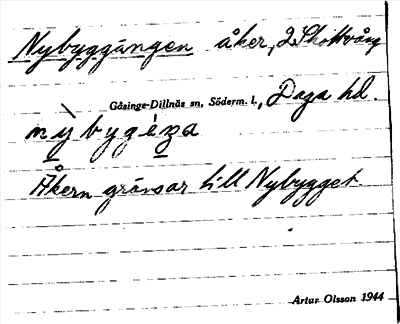 Nybyggängen åker, 2 Skottvång
Gåsinge-Dillnäs sn, Söderm. l., Daga hd.
Åkern gränsar till Nybygget.
Artur Olsson 1944